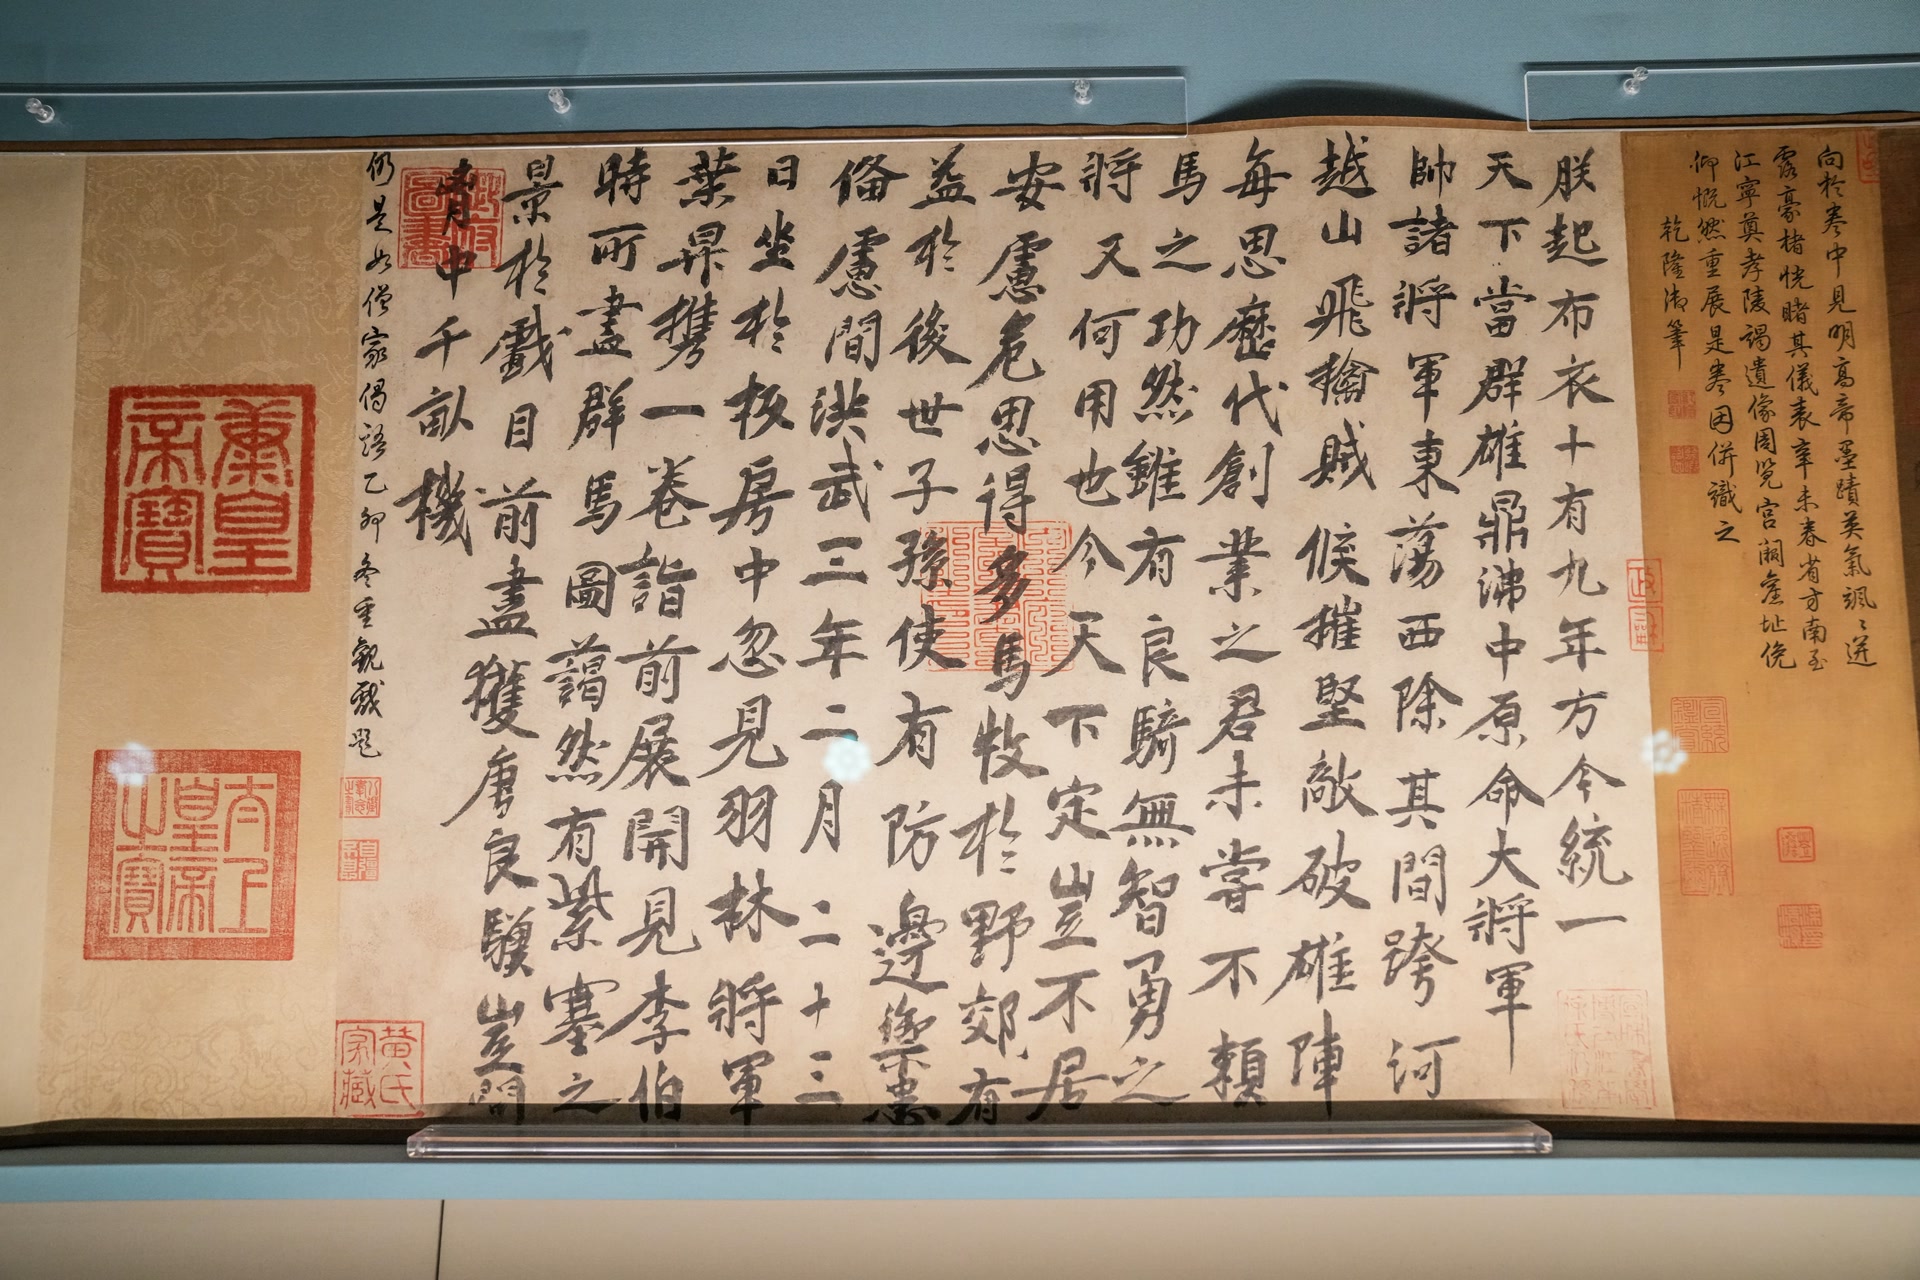 向於卷中見明高帝墨蹟英氣颯〻迸
露豪楮恍睹其儀表辛未春省方南至
江寧奠孝陵謁遺像周覽宮闕舊址俛
仰慨然重展是卷因併識之
乾隆御筆
朕起布衣十有九年方今統一
天下當群雄鼎沸中原命大將軍
帥諸將軍東蕩西除其間跨河
越山飛擒賊候摧堅敵破雄陣
每思歷代創業之君未嘗不賴
馬之功然雖有良騎無智勇之
將又何用也今天下定豈不居
安慮危思得多馬牧於野郊有
益於後世子孫使有防邊禦患
俻慮間洪武三年二月二十三
日坐於板房中忽見羽林將軍
葉昇攜一卷詣前展開見李伯
時所畫群馬圖藹然有紫塞之
景於戲目前盡獲唐良驥豈問
胷中千畝機
御府圖書
仍是如僧家偈語乙卯冬重觀戲題
八徵耄念
自彊不息
黃氏家藏
太上皇帝之寶